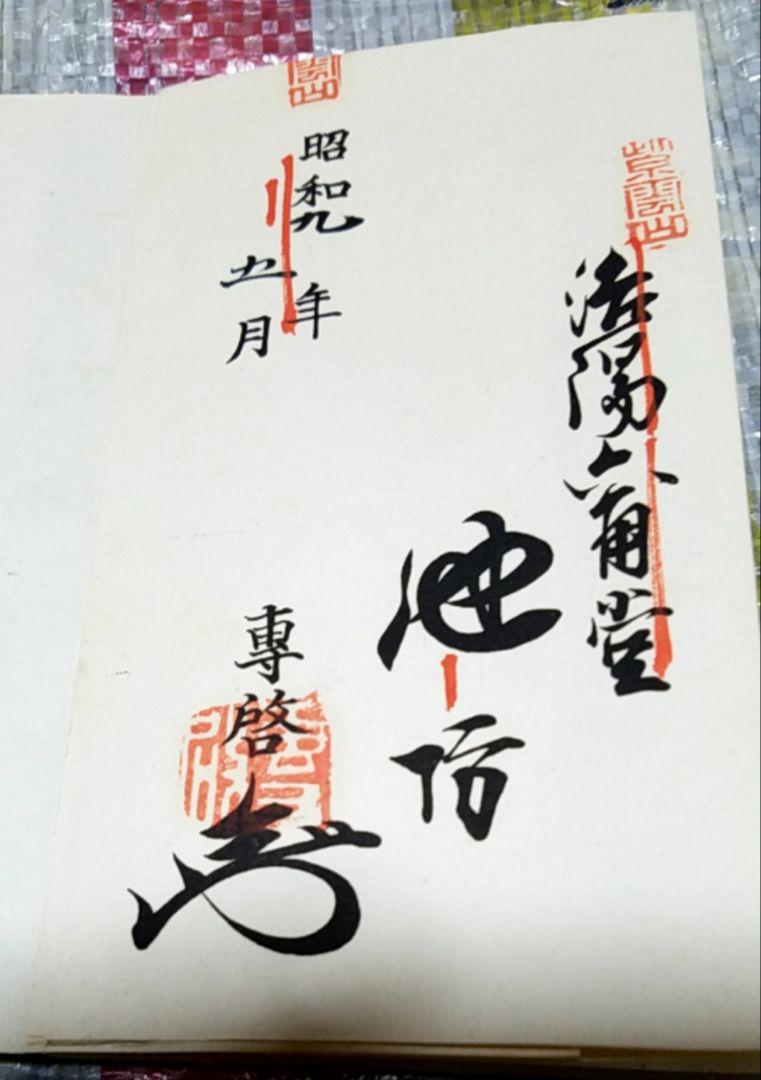 洛陽六角堂
池坊
昭和九年
五月
專啓